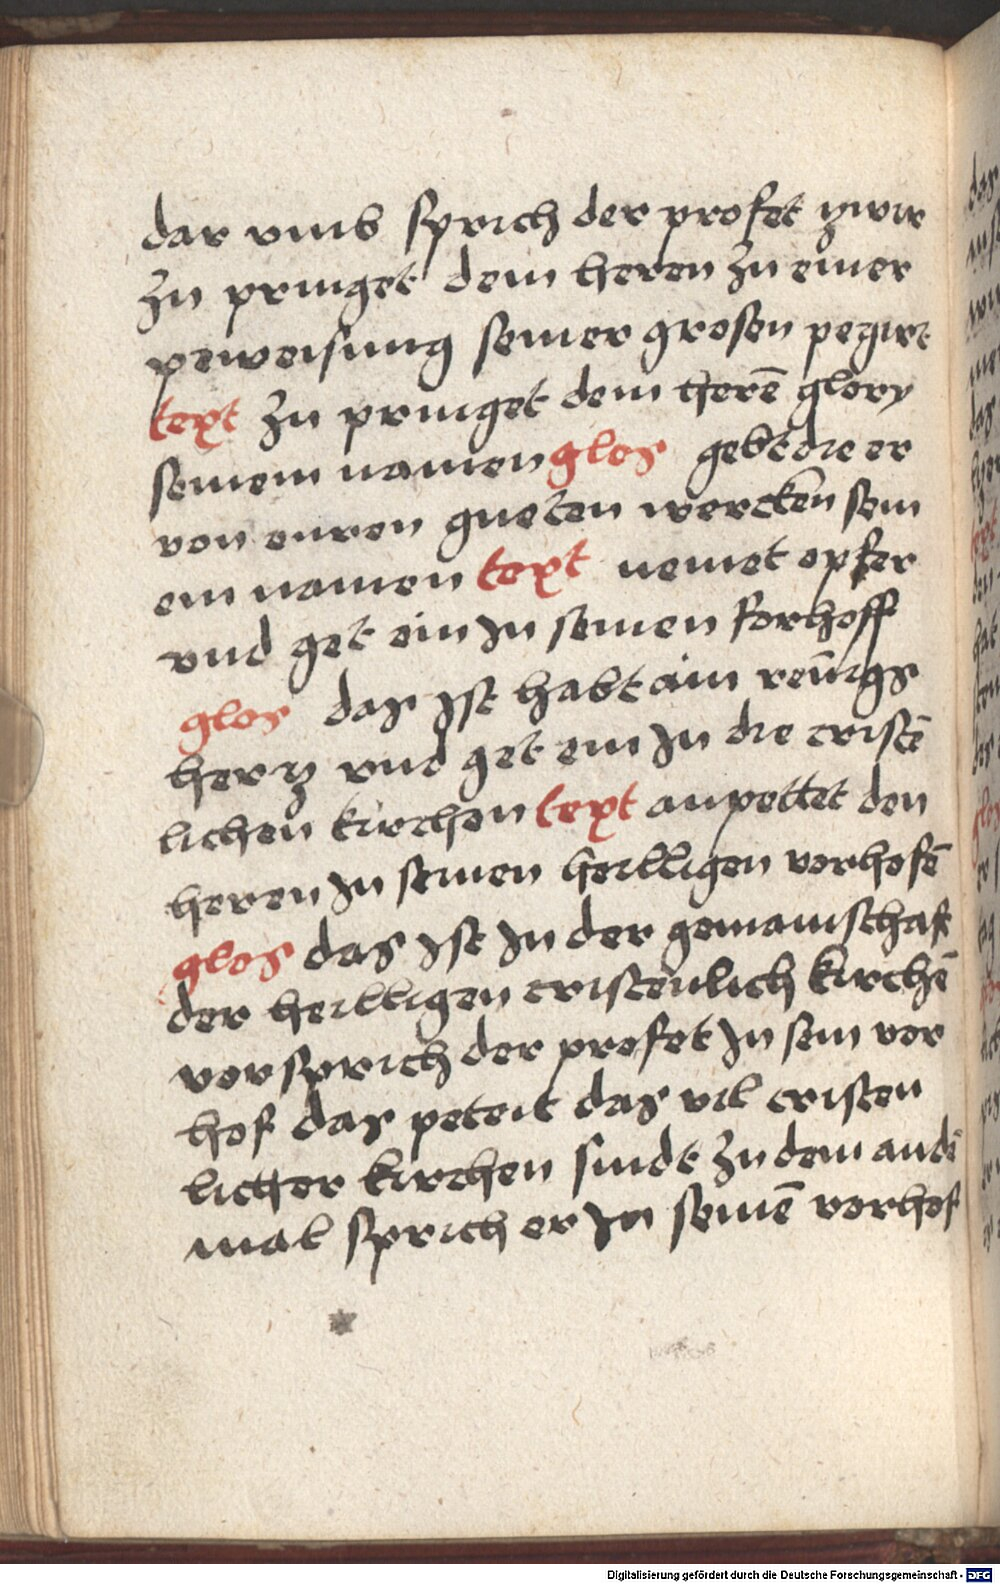 dar vmb sprich der profet zwir
zu pringet dem heren zu einer
peweisung seiner grosen pegirt
text zu pringet dem herē glory
seinem namen glos gebt die er
von euren gueten wercken sein
em namen text nemet opfer
vnd get ein in seinen forhoff
glos das ist habt ain reūigs
hercz vnd get ein in die cristē
lichen kirchen text anpettet den
heren in seinen heilligen vorhofē
glos das ist in der gemainschaft
der heilligen cristenlich kirchē
vor sprich der profet in sein vor
hof das peteit das vil cristen
licher kirchen sindt zu dem andē
mal sprich er in seinē vorhof
Digitalisierung gefördert durch die Deutsche Forschungsgemeinschaft - DFG